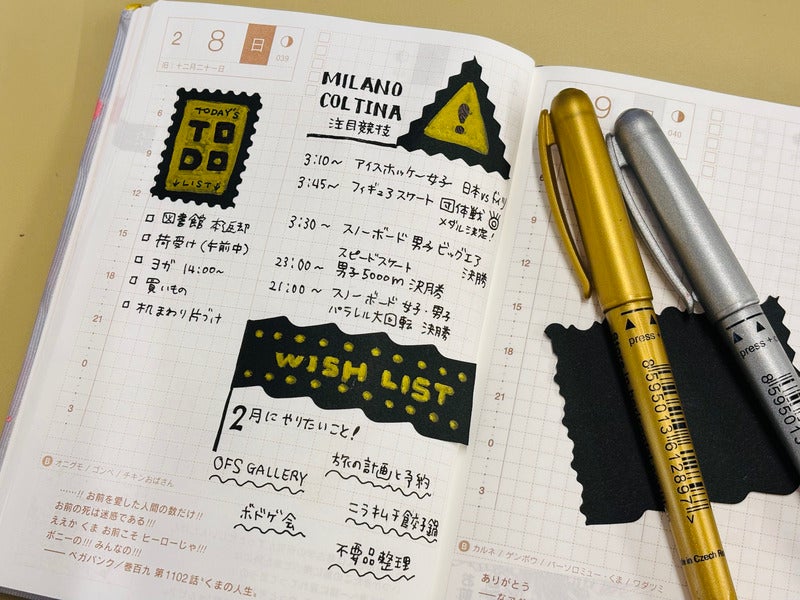 2 8 日
039
旧｜十二月二十一日
TODAY'S
TO
DO
LIST
図書館 本返却
荷受け(午前中)
ヨガ 14:00~
買いもの
机まわり片づけ
MILANO
COLTINA
注目競技
3:10~ アイスホッケー女子 日本vsドイツ
3:45~ フィギュアスケート 団体戦
メダル決定!
3:30~ スノーボード 男子 ビッグエア
決勝
スピードスケート
23:00~ 男子5000m 決勝
21:00~ スノーボード 女子・男子
パラレル大回転 決勝
WISH LIST
2月にやりたいこと!
OFS GALLERY
旅の計画と予約
ボドゲ会
ニラキムチ餃子鍋
不要品整理
6
9
12
15
18
21
0
3
B オニグモ / ゴンベ / チキンおばさん
……!! お前を愛した人間の数だけ!!
お前の死は迷惑である!!!
ええか くま お前こそ ヒーローじゃ!!!
ボニーの!!! みんなの!!!
―― ベガパンク／巻百九 第1102話“くまの人生”
9
040
12
15
18
21
0
3
B カルネ / ゲンボウ / バーソロミュー・くま / ワダツミ
ありがとう
press
8595013612897
made in Czech Re
press
8595013